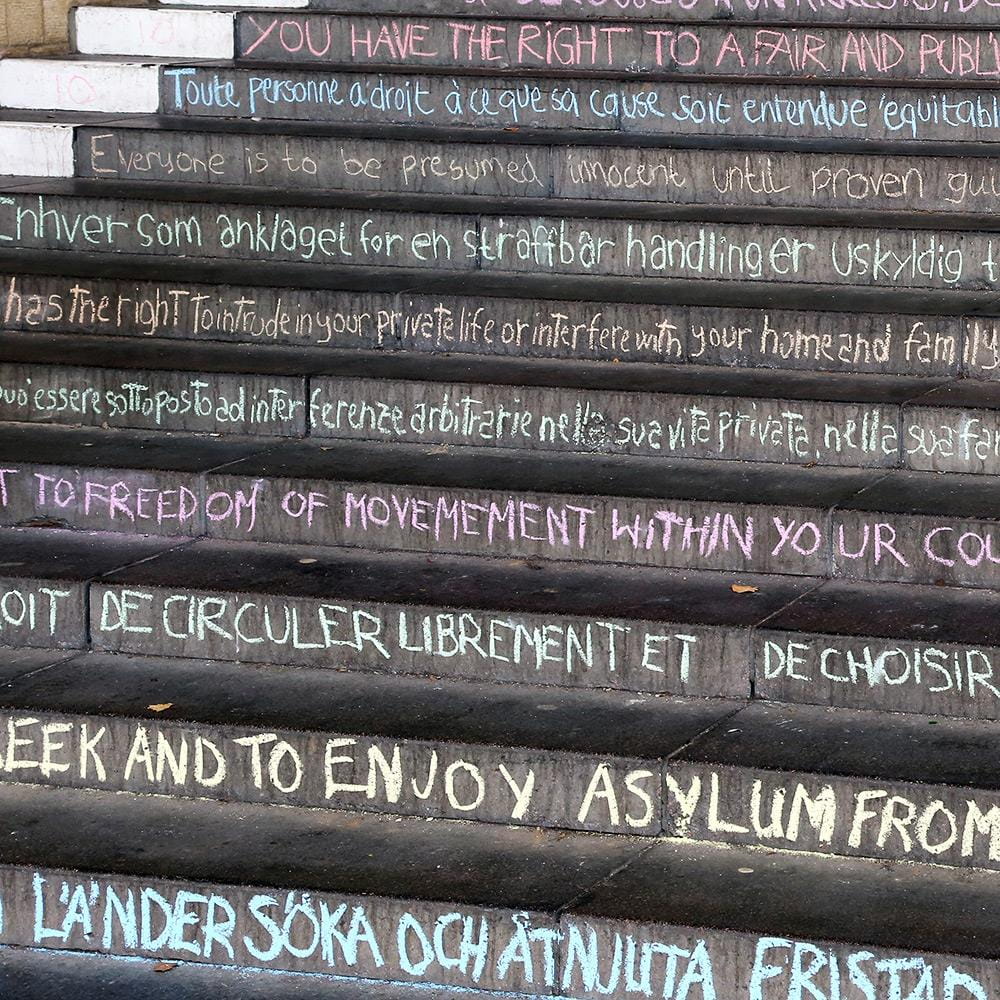 YOU HAVE THE RIGHT TO A FAIR AND PUBL
10
Toute personne a droit à ce que sa cause soit entendue équitabl
Everyone is to be presumed innocent until proven gui
Enhver som anklaget for en straffbar handling er uskyldig t
has the right To intrude in your private life or interfere with your home and family
può essere sottoposto ad interferenze arbitrarie nella sua vita privata, nella sua fa
T TO FREEDOM OF MOVEMEMENT WITHIN YOUR COU
OIT DE CIRCULER LIBREMENT ET DE CHOISIR
EEK AND TO ENJOY ASYLUM FROM
LÄNDER SÖKA OCH ÅTNJUTA FRISTAD